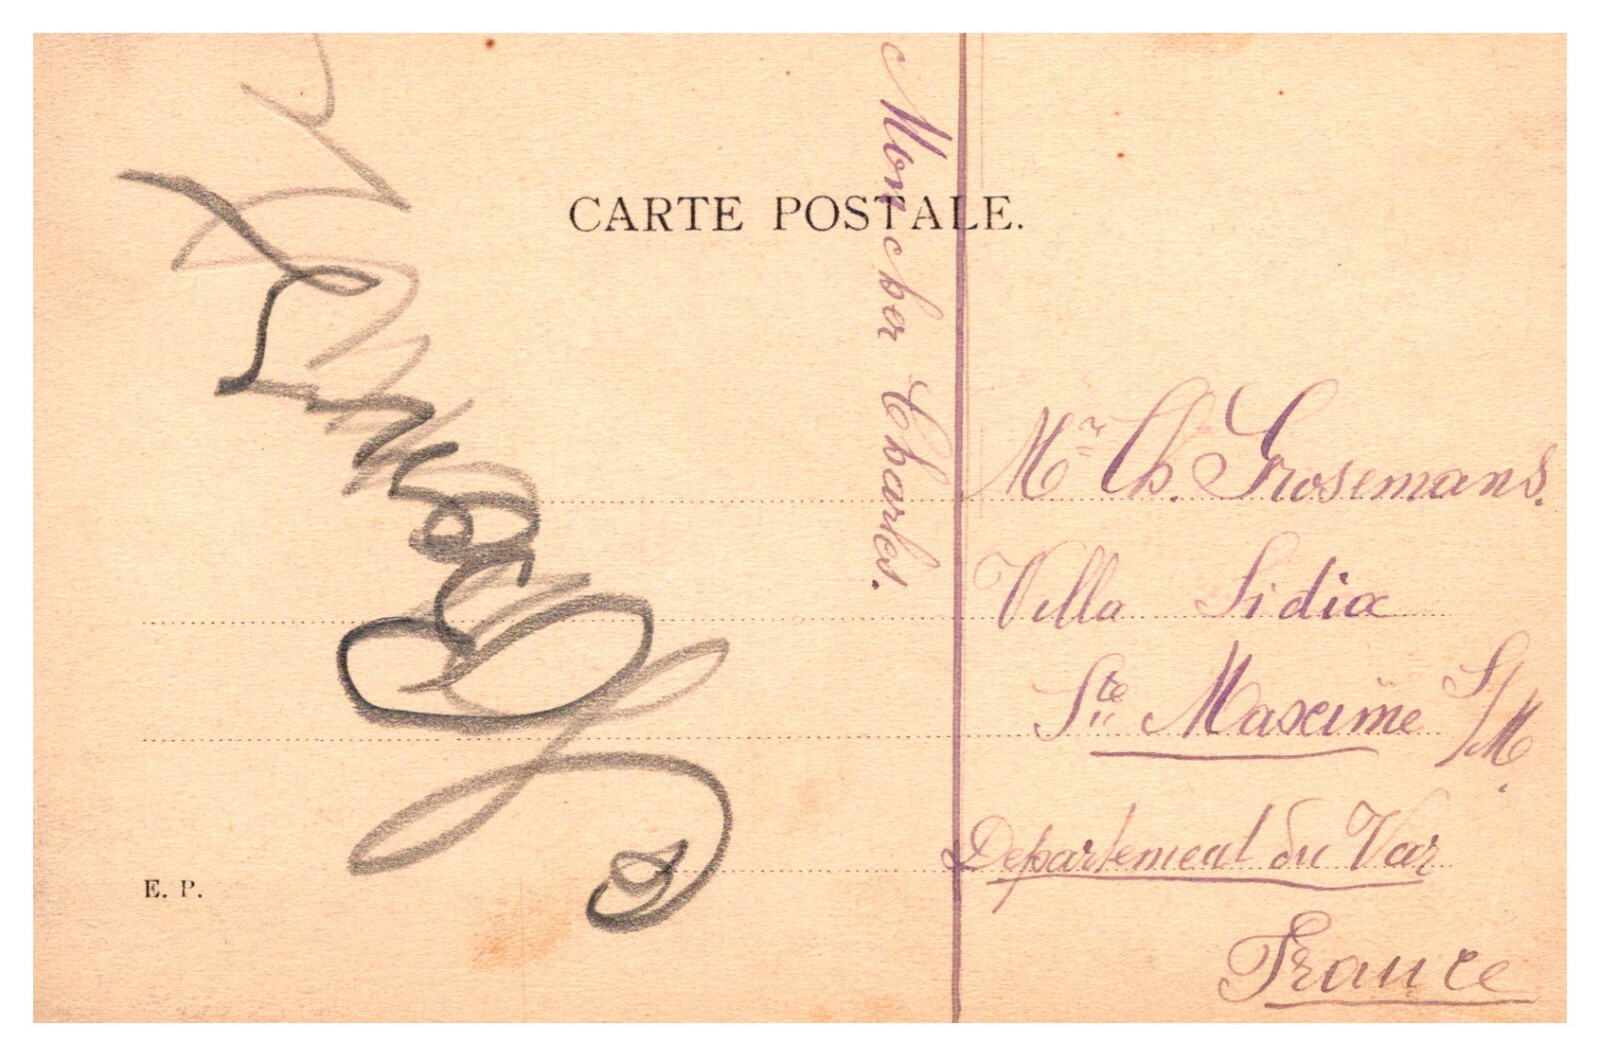 CARTE POSTALE.
Mon cher Charles.
Mr Ch. Grosemans.
Villa Lidia
Ste Maxime S/M.
Departement du Var
France
E. P.